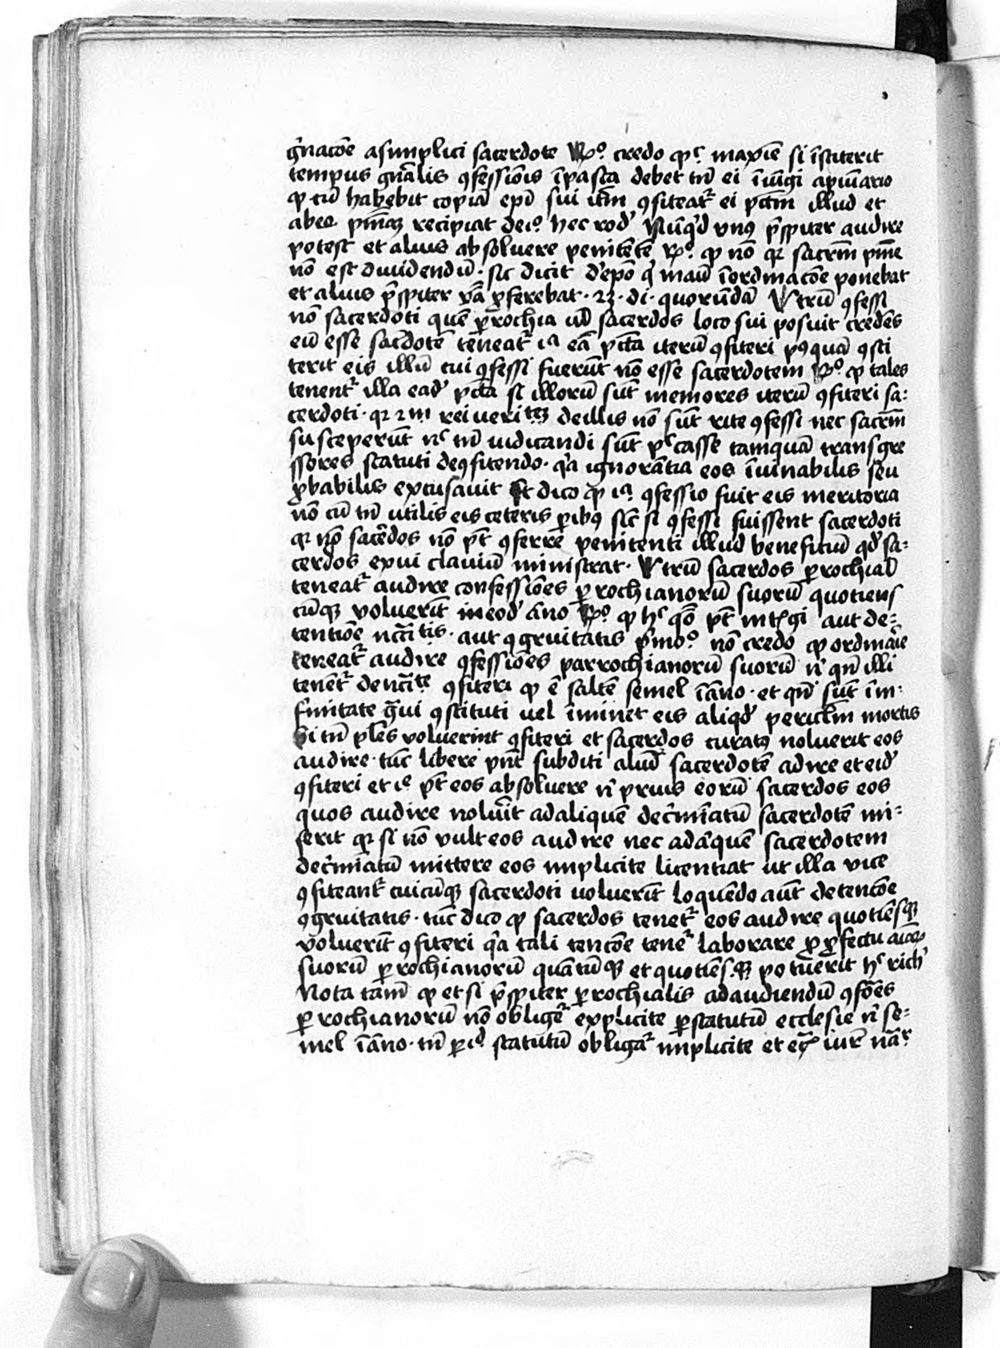 gnacōe a simplici sacerdote Rº credo qꝫ maxīe si īstiterit
tempus gn̄alis ꝯfessiōis ī pasca debet tn̄ ei iniūgi a primario
ꝙ cū habebit copiā epī sui itm̄ ꝯfiteatr̄ ei pctm̄ illud et
ab eo pnīaꝫ recipiat de iº hec rod Nūquid vnꝰ p̄sbiter audire
potest et alius absoluere penitētē Rº ꝙ nō qr sacrm̄ pnīe
nō est diuidendū · sic dicit d'epo q̄ manū ī ordinacōe ponebat
et alius p̄sbiter v̄ba ꝓferebat · 23 · di · quorūdā Vtrū ꝯfessi
nō sacerdoti quē ꝑrochia ul' sacerdos loco sui posuit credēs
eū esse sac̄dotē teneātr̄ ea pctā iterū ꝯfiteri pꝰquā ꝯsti
terit eis illū cui ꝯfessi fuerūt nō esse sacerdotem Rº ꝙ tales
tenentr̄ illa ead' pctā si illorū sūt memores iterū ꝯfiteri sa-
cerdoti · qr in rei veritate de illis nō sūt rite ꝯfessi nec sacrm̄
susceperūt nc̄ tn̄ iudicandi sūt tamquā transgre
ssores statuti de ꝯfitendo · qꝛ ignorātia eos īuīcibilis seu
ꝓbabilis excusauit Et dico ꝙ ꝯfessio fuit eis meritoria
nō cū tn̄ utilis eis ceteris paribꝰ sic̄ si ꝯfessi fuissent sacerdoti
qr nō sac̄dos nō pōt ꝯferre penitenti illud beneficiū qd' sa-
cerdos ex vi clauiū ministrat · Vtrū sacerdos ꝑrochial'
teneatr̄ audire confessiōes ꝑrochianorū suorū quotiens
cūqꝫ voluerīt in eod' āno Rº ꝙ hec qō pōt intelligi aut de
tentiōe nccītatis · aut ꝯgruitatis pͥmoº nō credo ꝙ ordinarie
teneatr̄ audire ꝯfessiōes parrochianorū suorū nͥ qn̄ illi
tenētr̄ de ncc̄itate ꝯfiteri ꝙ ē saltē semel ī āno · et qn̄ sūt ī in-
firmitate gͣui ꝯstituti uel īminet eis aliqd' pericl'm mortis
Si tn̄ ples voluerint ꝯfiteri et sacerdos curatꝰ noluerit eos
audire · tūc libere pn̄t subditi aliud' sacerdotē adire et eid'
ꝯfiteri et iº pōt eos absoluere nͥ prius eorū sacerdos eos
quos audire noluit ad aliquē det̄minatū sacerdotē mi-
serit qr si nō vult eos audire nec ad aliquē sacerdotem
det̄minatū mittere eos implicite licentiat ut illa vice
ꝯfiteant̄ cuicūqꝫ sacerdoti voluerīt loquēdo aūt de tencōe
ꝯgruitatis · tūc dico ꝙ sacerdos tenetr̄ eos audire quotiēsqꝫ
voluerīt ꝯfiteri qꝛ tali tencōe tenetr̄ laborare ꝓ ꝓfectu aīarꝫ
suorū ꝑrochianorū quātūqꝫ et quotiēsqꝫ potuerit hc̄ rich'
Nota tam̄ ꝙ etsi p̄sbiter ꝑrochialis ad audiendū ꝯfōes
ꝑrochianorū nō obligetr̄ explicite ꝑ statutū ecclesie nͥ se-
mel ī āno · tn̄ ꝑ id' statutū obligatr̄ implicite et ex iure natͬ